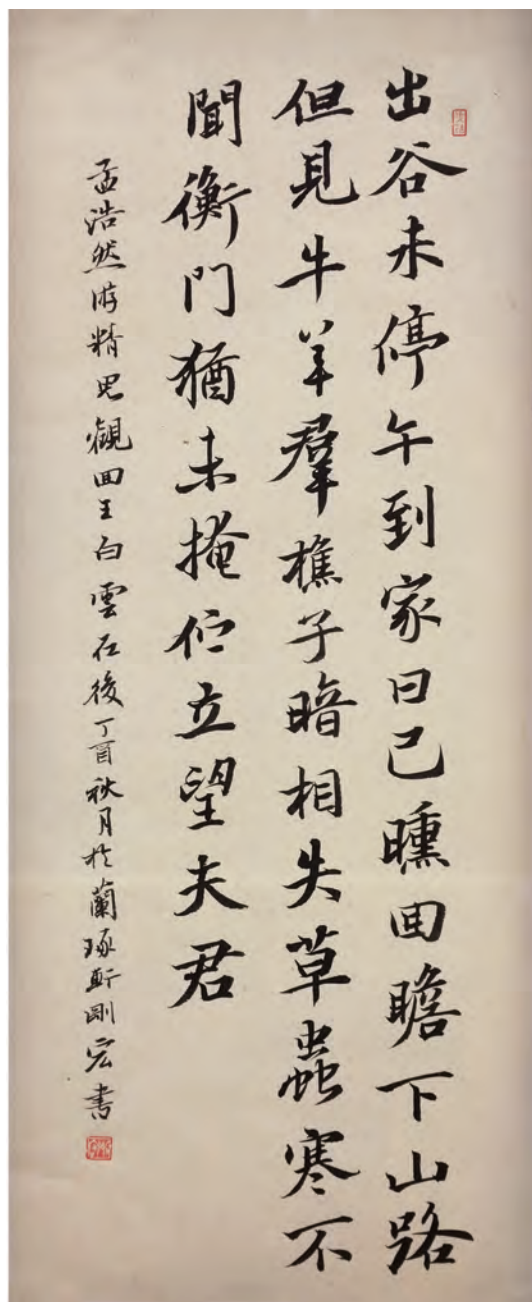 出谷未停午到家日已曛回瞻下山路
但見牛羊羣樵子暗相失草蟲寒不
聞衡門猶未掩佇立望夫君
孟浩然游精思觀回王白雲在後丁酉秋月於蘭琢軒剛宏書